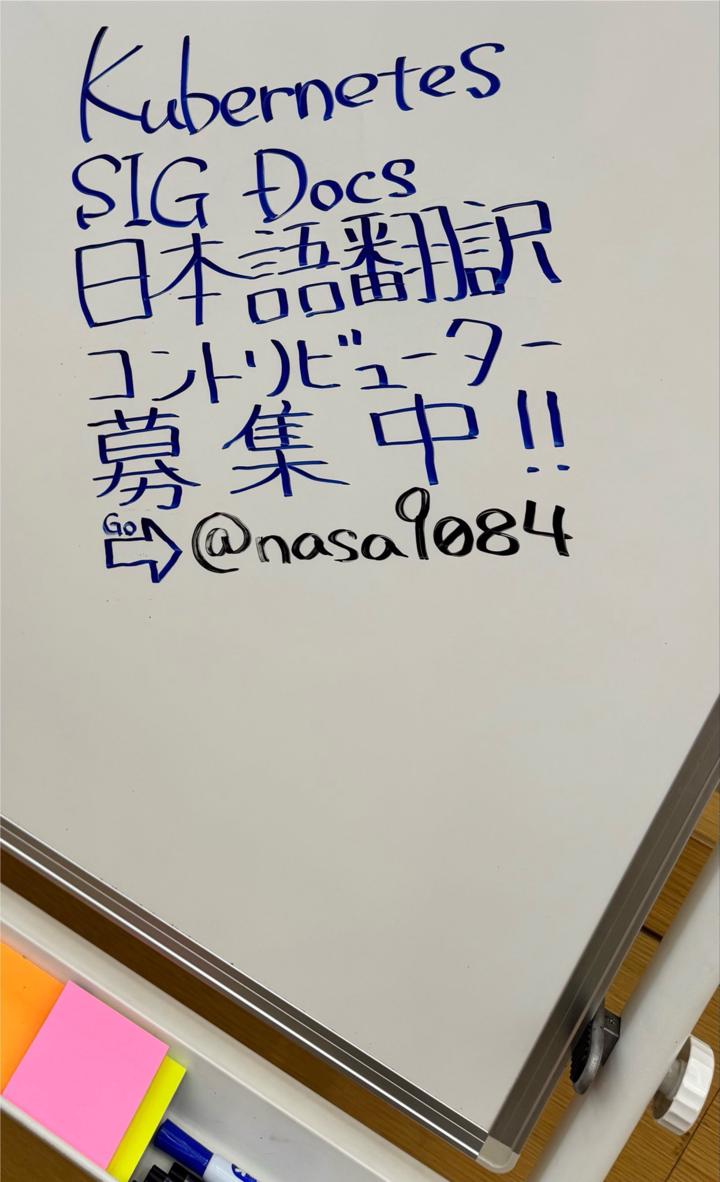 Kubernetes
SIG Docs
日本語翻訳
コントリビューター
募集中!!
Go
@nasa9084